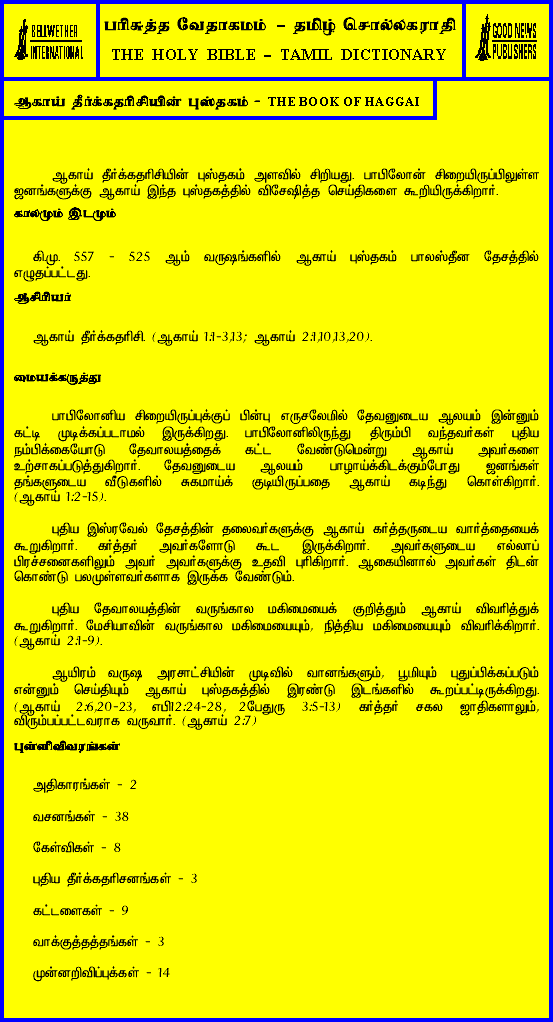 BELLWETHER
INTERNATIONAL
பரிசுத்த வேதாகமம் - தமிழ் சொல்லகராதி
THE HOLY BIBLE – TAMIL DICTIONARY
GOOD NEWS
PUBLISHERS
ஆகாய் தீர்க்கதரிசியின் புஸ்தகம் - THE BOOK OF HAGGAI
ஆகாய் தீர்க்கதரிசியின் புஸ்தகம் அளவில் சிறியது. பாபிலோன் சிறையிருப்பிலுள்ள
ஜனங்களுக்கு ஆகாய் இந்த புஸ்தகத்தில் விசேஷித்த செய்திகளை கூறியிருக்கிறார்.
காலமும் இடமும்
கி.மு. 557 - 525 ஆம் வருஷங்களில் ஆகாய் புஸ்தகம் பாலஸ்தீன தேசத்தில்
எழுதப்பட்டது.
ஆசிரியர்
ஆகாய் தீர்க்கதரிசி. (ஆகாய் 1:1-3,13; ஆகாய் 2:1,10,13,20).
மையக்கருத்து
பாபிலோனிய சிறையிருப்புக்குப் பின்பு எருசலேமில் தேவனுடைய ஆலயம் இன்னும்
கட்டி முடிக்கப்படாமல் இருக்கிறது. பாபிலோனிலிருந்து திரும்பி வந்தவர்கள் புதிய
நம்பிக்கையோடு தேவாலயத்தைக் கட்ட வேண்டுமென்று ஆகாய் அவர்களை
உற்சாகப்படுத்துகிறார். தேவனுடைய ஆலயம் பாழாய்க்கிடக்கும்போது ஜனங்கள்
தங்களுடைய வீடுகளில் சுகமாய்க் குடியிருப்பதை ஆகாய் கடிந்து கொள்கிறார்.
(ஆகாய் 1:2-15).
புதிய இஸ்ரவேல் தேசத்தின் தலைவர்களுக்கு ஆகாய் கர்த்தருடைய வார்த்தையைக்
கூறுகிறார். கர்த்தர் அவர்களோடு கூட இருக்கிறார். அவர்களுடைய எல்லாப்
பிரச்சனைகளிலும் அவர் அவர்களுக்கு உதவி புரிகிறார். ஆகையினால் அவர்கள் திடன்
கொண்டு பலமுள்ளவர்களாக இருக்க வேண்டும்.
புதிய தேவாலயத்தின் வருங்கால மகிமையைக் குறித்தும் ஆகாய் விவரித்துக்
கூறுகிறார். மேசியாவின் வருங்கால மகிமையையும், நித்திய மகிமையையும் விவரிக்கிறார்.
(ஆகாய் 2:1-9).
ஆயிரம் வருஷ அரசாட்சியின் முடிவில் வானங்களும், பூமியும் புதுப்பிக்கப்படும்
என்னும் செய்தியும் ஆகாய் புஸ்தகத்தில் இரண்டு இடங்களில் கூறப்பட்டிருக்கிறது.
(ஆகாய் 2:6,20-23, எபி12:24-28, 2பேதுரு 3:5-13) கர்த்தர் சகல ஜாதிகளாலும்,
விரும்பப்பட்டவராக வருவார். (ஆகாய் 2:7)
புள்ளிவிவரங்கள்
அதிகாரங்கள் - 2
வசனங்கள் - 38
கேள்விகள் - 8
புதிய தீர்க்கதரிசனங்கள் - 3
கட்டளைகள் - 9
வாக்குத்தத்தங்கள் - 3
முன்னறிவிப்புக்கள் - 14